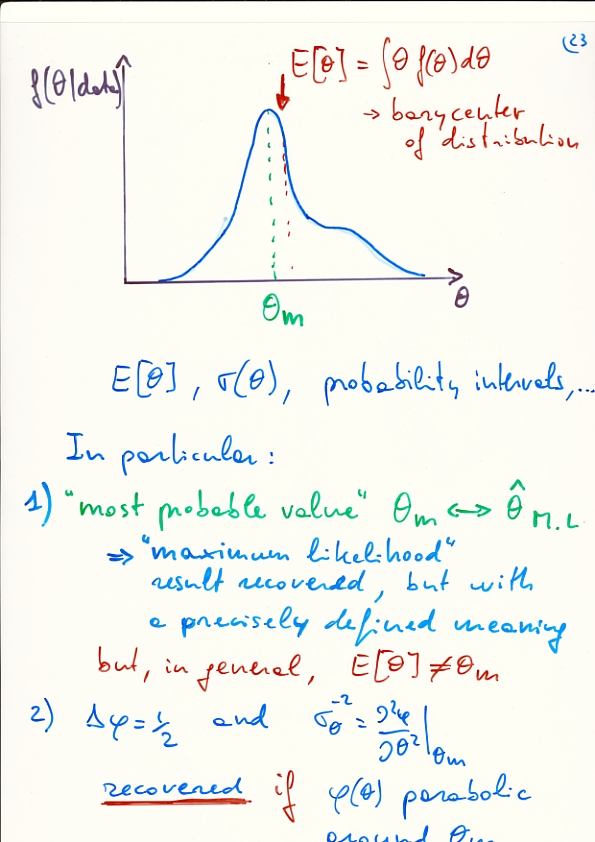 (23
E[θ] = ∫θ f(θ) dθ
f(θ|data)
→ barycenter
of distribution
θ
θm
E[θ], σ(θ), probability intervals,...
In particular:
1) "most probable value" θm ↔ θ̂ M.L
⇒ "maximum likelihood"
result recovered, but with
a precisely defined meaning
but, in general, E[θ] ≠ θm
2) Δφ = 1/2 and σθ⁻² = ∂²φ/∂θ² |θm
recovered if φ(θ) parabolic
around θm